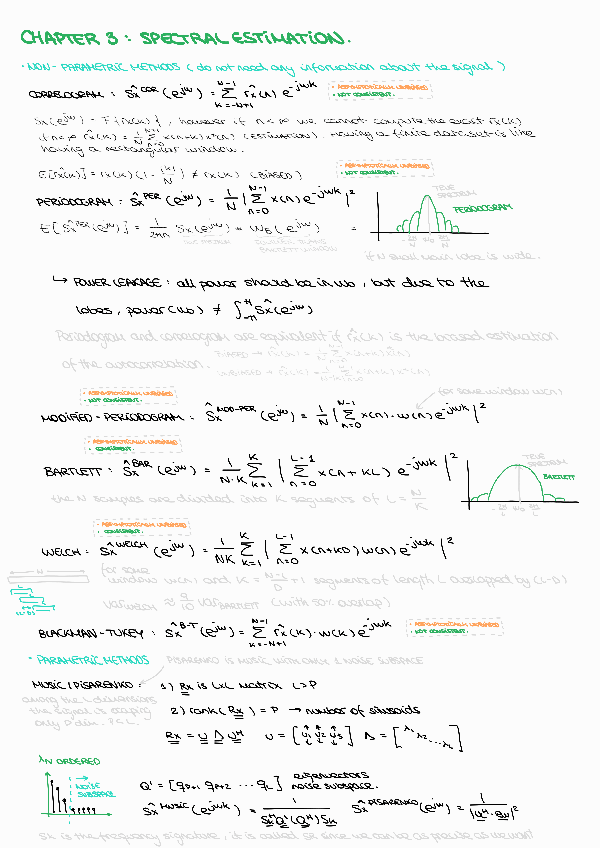 CHAPTER 3: SPECTRAL ESTIMATION.
· NON-PARAMETRIC METHODS (do not need any information about the signal)
CORRELOGRAM: Ŝx^COR (e^jω) = Σ_{k=-N+1}^{N-1} r̂x(k) e^-jωk
• ASYMPTOTICALLY UNBIASED
• NOT CONSISTENT.
Sx(e^jω) = F{rx(k)}, however if N<∞ we cannot compute the exact rx(k)
(ESTIMATION). Having a finite data set is like
having a rectangular window.
E[r̂x(k)] = rx(k)(1 - |k|/N) ≠ rx(k) (BIASED)
• ASYMPTOTICALLY UNBIASED
• NOT CONSISTENT.
PERIODOGRAM: Ŝx^PER (e^jω) = 1/N |Σ_{n=0}^{N-1} x(n) e^-jωk|²
TRUE SPECTRUM
PERIODOGRAM
if N small main lobe is wide.
↳ POWER LEAKAGE: all power should be in ω₀, but due to the
lobes, power(ω₀) ≠ ∫_{-π}^{π} Ŝx(e^jω)
Periodogram and correlogram are equivalent if r̂x(k) is the biased estimation
of the autocorrelation.
• ASYMPTOTICALLY UNBIASED
• NOT CONSISTENT.
for some window w(n)
MODIFIED-PERIODOGRAM: Ŝx^MOD-PER (e^jω) = 1/N |Σ_{n=0}^{N-1} x(n)·w(n) e^-jωk|²
• ASYMPTOTICALLY UNBIASED
• CONSISTENT.
BARTLETT: Ŝx^BAR (e^jω) = 1/(N·K) Σ_{k=1}^{K} |Σ_{n=0}^{L-1} x(n+kL) e^-jωk|²
TRUE SPECTRUM
BARTLETT
the N samples are divided into K segments of L = N/K
• ASYMPTOTICALLY UNBIASED
• CONSISTENT.
WELCH: Ŝx^WELCH (e^jω) = 1/NK Σ_{k=1}^{K} |Σ_{n=0}^{L-1} x(n+kD) w(n) e^-jωk|²
for some
window w(n) and K = (N-L)/D + 1 segments of length L overlapped by (L-D)
VAR_WELCH ≈ 9/10 VAR_BARTLETT (with 50% overlap)
BLACKMAN-TUKEY: Ŝx^B-T (e^jω) = Σ_{k=-N+1}^{N-1} r̂x(k)·w(k) e^-jωk
• ASYMPTOTICALLY UNBIASED
• NOT CONSISTENT.
· PARAMETRIC METHODS PISARENKO IS MUSIC WITH ONLY 1 NOISE SUBSPACE
MUSIC/PISARENKO: 1) Rx is LxL matrix L>P
among the L dimensions
the signal is occuping
only P dim. P<L.
2) rank(Rx) = P → number of sinusoids
Rx = U Λ U^H U = [u₁ u₂ u₃] Λ = [λ₁ λ₂ ... λL]
λN ORDERED
NOISE SUBSPACE
Q' = [qp+1 qp+2 ... qL] eigenvectors
noise subspace.
Ŝx^MUSIC (e^jωk) = 1/(Sk^H Q' (Q')^H Sk) Ŝx^PISARENKO (e^jωk) =
Sk is the frequency signature, it is called SR since we can be as precise as we want